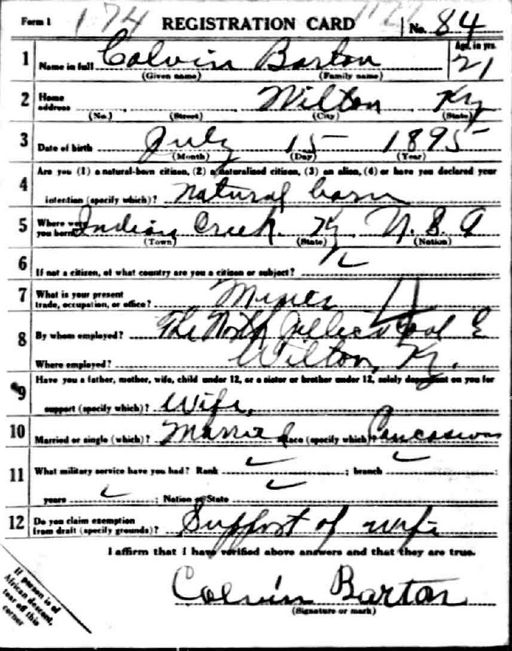 Form 1 174 REGISTRATION CARD No. 84
1 Name in full Colvin Barton Age, in yrs. 21
(Given name) (Family name)
2 Home address Wilton Ky
(No.) (Street) (City) (State)
3 Date of birth July 15 1895
(Month) (Day) (Year)
4 Are you (1) a natural-born citizen, (2) a naturalized citizen, (3) an alien, (4) or have you declared your
intention (specify which)? natural born
5 Where were you born? Indian Creek Ky U.S.A
(Town) (State) (Nation)
6 If not a citizen, of what country are you a citizen or subject? ✓
7 What is your present trade, occupation, or office? Miner
8 By whom employed? The North Jellico Coal
Where employed? Wilton, Ky.
9 Have you a father, mother, wife, child under 12, or a sister or brother under 12, solely dependent on you for
support (specify which)? Wife,
10 Married or single (which)? Married Race (specify which)? Caucasian
11 What military service have you had? Rank ✓ ; branch ✓
years ✓ ; Nation or State ✓
12 Do you claim exemption from draft (specify grounds)? Support of wife
I affirm that I have verified above answers and that they are true.
Colvin Barton
(Signature or mark)
If person is of
African descent,
tear off this
corner